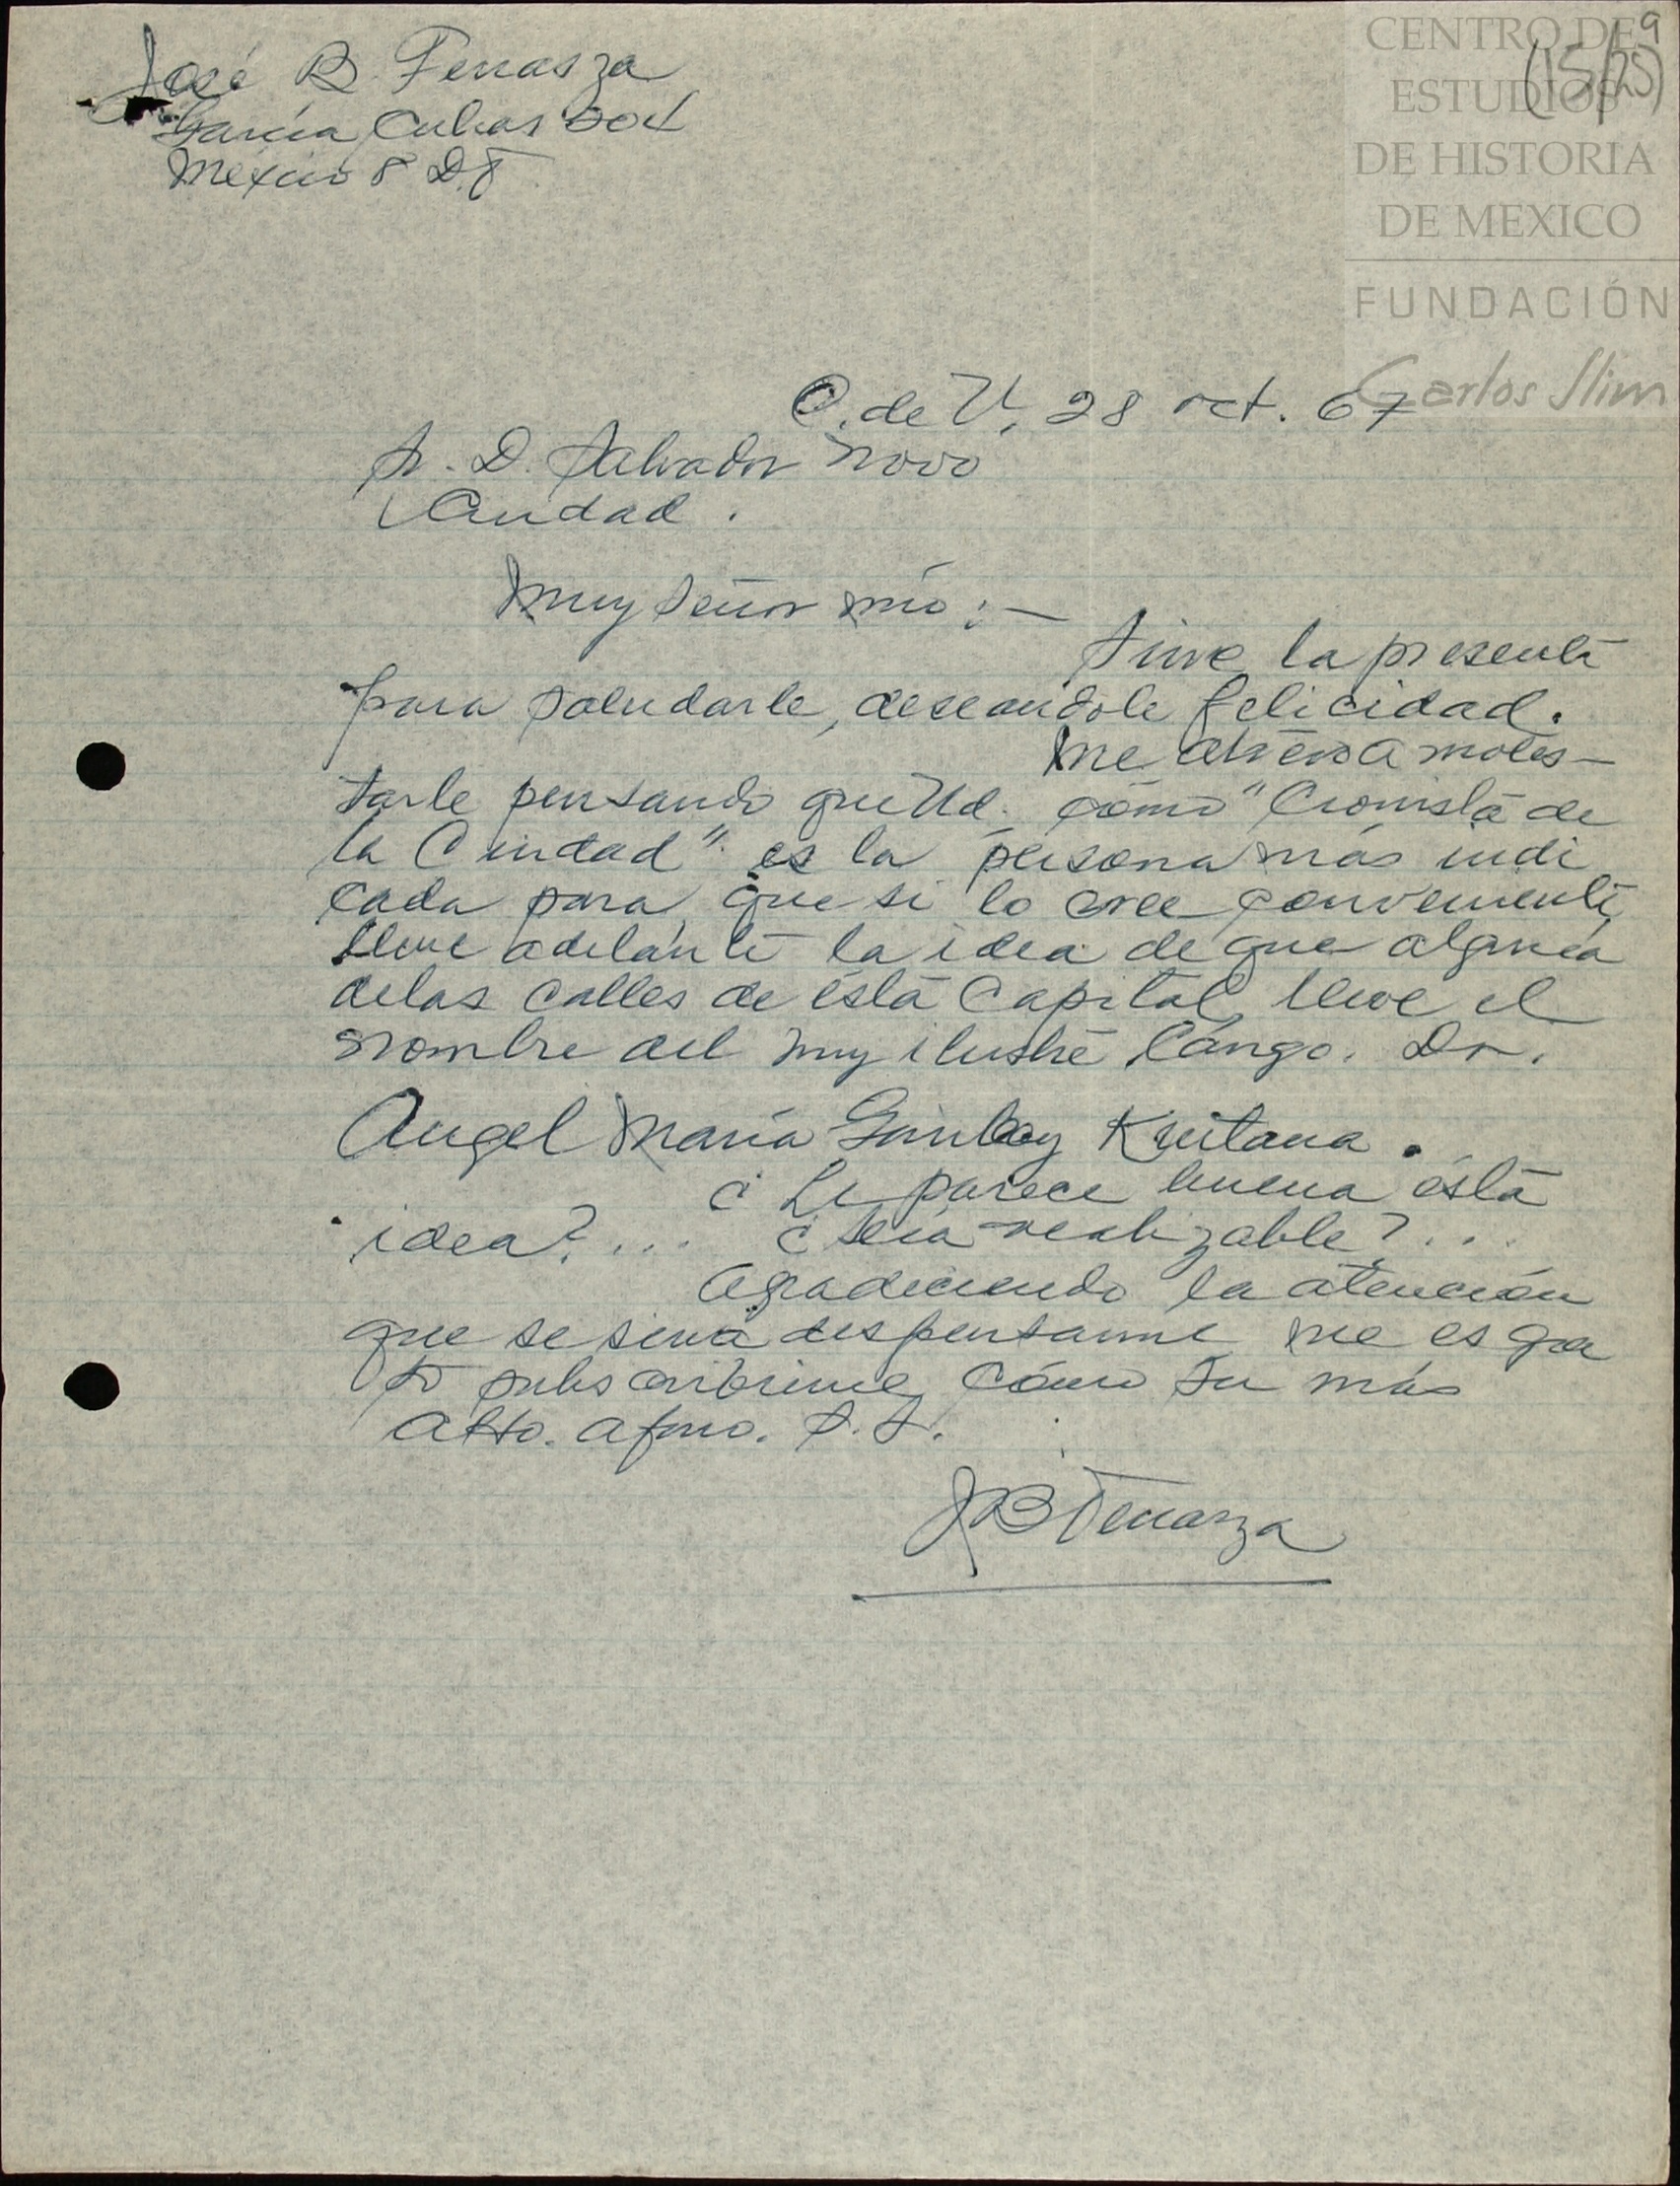 José B. Terrasza
García Cubas 204
México 8 D.F.
CENTRO DE
ESTUDIOS
DE HISTORIA
DE MEXICO
FUNDACIÓN
Carlos Slim
9
(15/25)
C. de V, 28 oct. 67
Sr. D. Salvador Novo
Ciudad.
Muy Señor mío:—
Sirve la presente
para saludarle, deseandole felicidad.
Me atrevo a moles-
tarle pensando que Ud. cómo "Cronista de
la Ciudad" es la persona más indi
cada para que si lo cree conveniente,
lleve adelante la idea de que alguna
de las calles de ésta Capital, lleve el
nombre del muy ilustre Cángo. Dr.
Angel María Garibay Kintana.
¿Le parece buena ésta
idea?... ¿Sería realizable?...
Agradeciendo la atención
que se sirva dispensarme, me es gra
to subscribirme, cómo su más
atto. afmo. S.S.
JB Terrasza